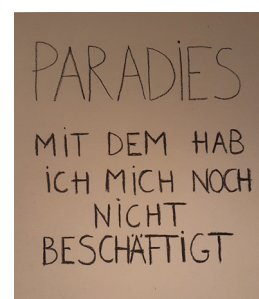 PARADiES
MiT DEM HAB
iCH MiCH NOCH
NiCHT
BESCHÄFTiGT